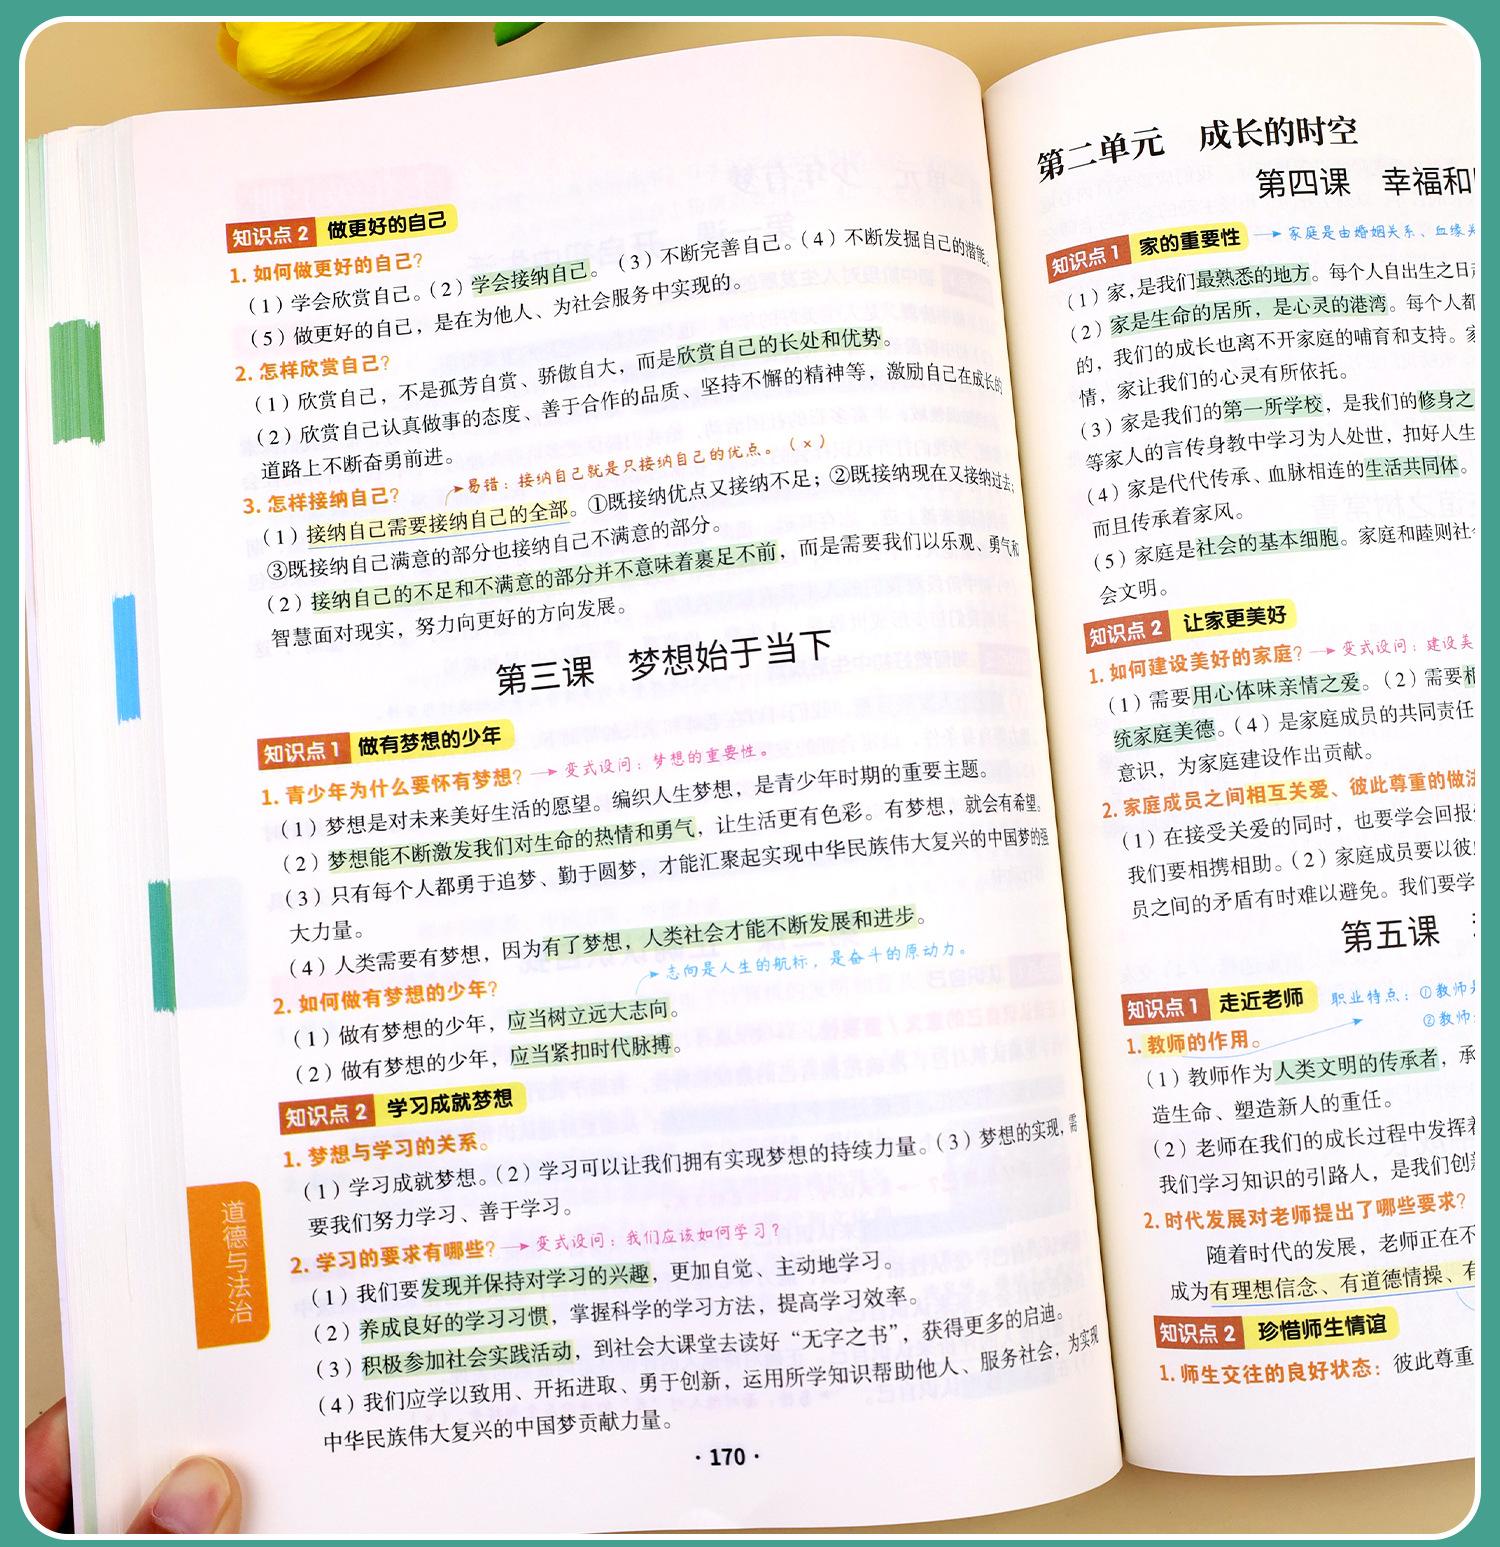 知识点 2 做更好的自己
1. 如何做更好的自己？
（1）学会欣赏自己。（2）学会接纳自己。（3）不断完善自己。（4）不断发掘自己的潜能。
（5）做更好的自己，是在为他人、为社会服务中实现的。
2. 怎样欣赏自己？
（1）欣赏自己，不是孤芳自赏、骄傲自大，而是欣赏自己的长处和优势。
（2）欣赏自己认真做事的态度、善于合作的品质、坚持不懈的精神等，激励自己在成长的
道路上不断奋勇前进。
易错：接纳自己就是只接纳自己的优点。（×）
3. 怎样接纳自己？
（1）接纳自己需要接纳自己的全部。①既接纳优点又接纳不足；②既接纳现在又接纳过去；
③既接纳自己满意的部分也接纳自己不满意的部分。
（2）接纳自己的不足和不满意的部分并不意味着裹足不前，而是需要我们以乐观、勇气和
智慧面对现实，努力向更好的方向发展。
第三课 梦想始于当下
知识点 1 做有梦想的少年
1. 青少年为什么要怀有梦想？ 变式设问：梦想的重要性。
（1）梦想是对未来美好生活的愿望。编织人生梦想，是青少年时期的重要主题。
（2）梦想能不断激发我们对生命的热情和勇气，让生活更有色彩。有梦想，就会有希望。
（3）只有每个人都勇于追梦、勤于圆梦，才能汇聚起实现中华民族伟大复兴的中国梦的强
大力量。
（4）人类需要有梦想，因为有了梦想，人类社会才能不断发展和进步。
志向是人生的航标，是奋斗的原动力。
2. 如何做有梦想的少年？
（1）做有梦想的少年，应当树立远大志向。
（2）做有梦想的少年，应当紧扣时代脉搏。
知识点 2 学习成就梦想
1. 梦想与学习的关系。
（1）学习成就梦想。（2）学习可以让我们拥有实现梦想的持续力量。（3）梦想的实现，需
要我们努力学习、善于学习。
2. 学习的要求有哪些？ 变式设问：我们应该如何学习？
（1）我们要发现并保持对学习的兴趣，更加自觉、主动地学习。
（2）养成良好的学习习惯，掌握科学的学习方法，提高学习效率。
（3）积极参加社会实践活动，到社会大课堂去读好“无字之书”，获得更多的启迪。
（4）我们应学以致用、开拓进取、勇于创新，运用所学知识帮助他人、服务社会，为实现
中华民族伟大复兴的中国梦贡献力量。
·170·
道德与法治
第二单元 成长的时空
第四课 幸福和
知识点 1 家的重要性 家庭是由婚姻关系、血缘
（1）家，是我们最熟悉的地方。每个人自出生之日
（2）家是生命的居所，是心灵的港湾。每个人都
的，我们的成长也离不开家庭的哺育和支持。
情，家让我们的心灵有所依托。
（3）家是我们的第一所学校，是我们的修身之
等家人的言传身教中学习为人处世，扣好人生
（4）家是代代传承、血脉相连的生活共同体。
而且传承着家风。
（5）家庭是社会的基本细胞。家庭和睦则社
会文明。
知识点 2 让家更美好
1. 如何建设美好的家庭？ 变式设问：建设美
（1）需要用心体味亲情之爱。（2）需要
统家庭美德。（4）是家庭成员的共同责任
意识，为家庭建设作出贡献。
2. 家庭成员之间相互关爱、彼此尊重的做
（1）在接受关爱的同时，也要学会回报
我们要相携相助。（2）家庭成员要以彼
员之间的矛盾有时难以避免。我们要学
第五课
知识点 1 走近老师 职业特点：①教师
②教师
1. 教师的作用。
（1）教师作为人类文明的传承者，承
造生命、塑造新人的重任。
（2）老师在我们的成长过程中发挥
我们学习知识的引路人，是我们创
2. 时代发展对老师提出了哪些要求？
随着时代的发展，老师正在不
成为有理想信念、有道德情操、有
知识点 2 珍惜师生情谊
1. 师生交往的良好状态：彼此尊重